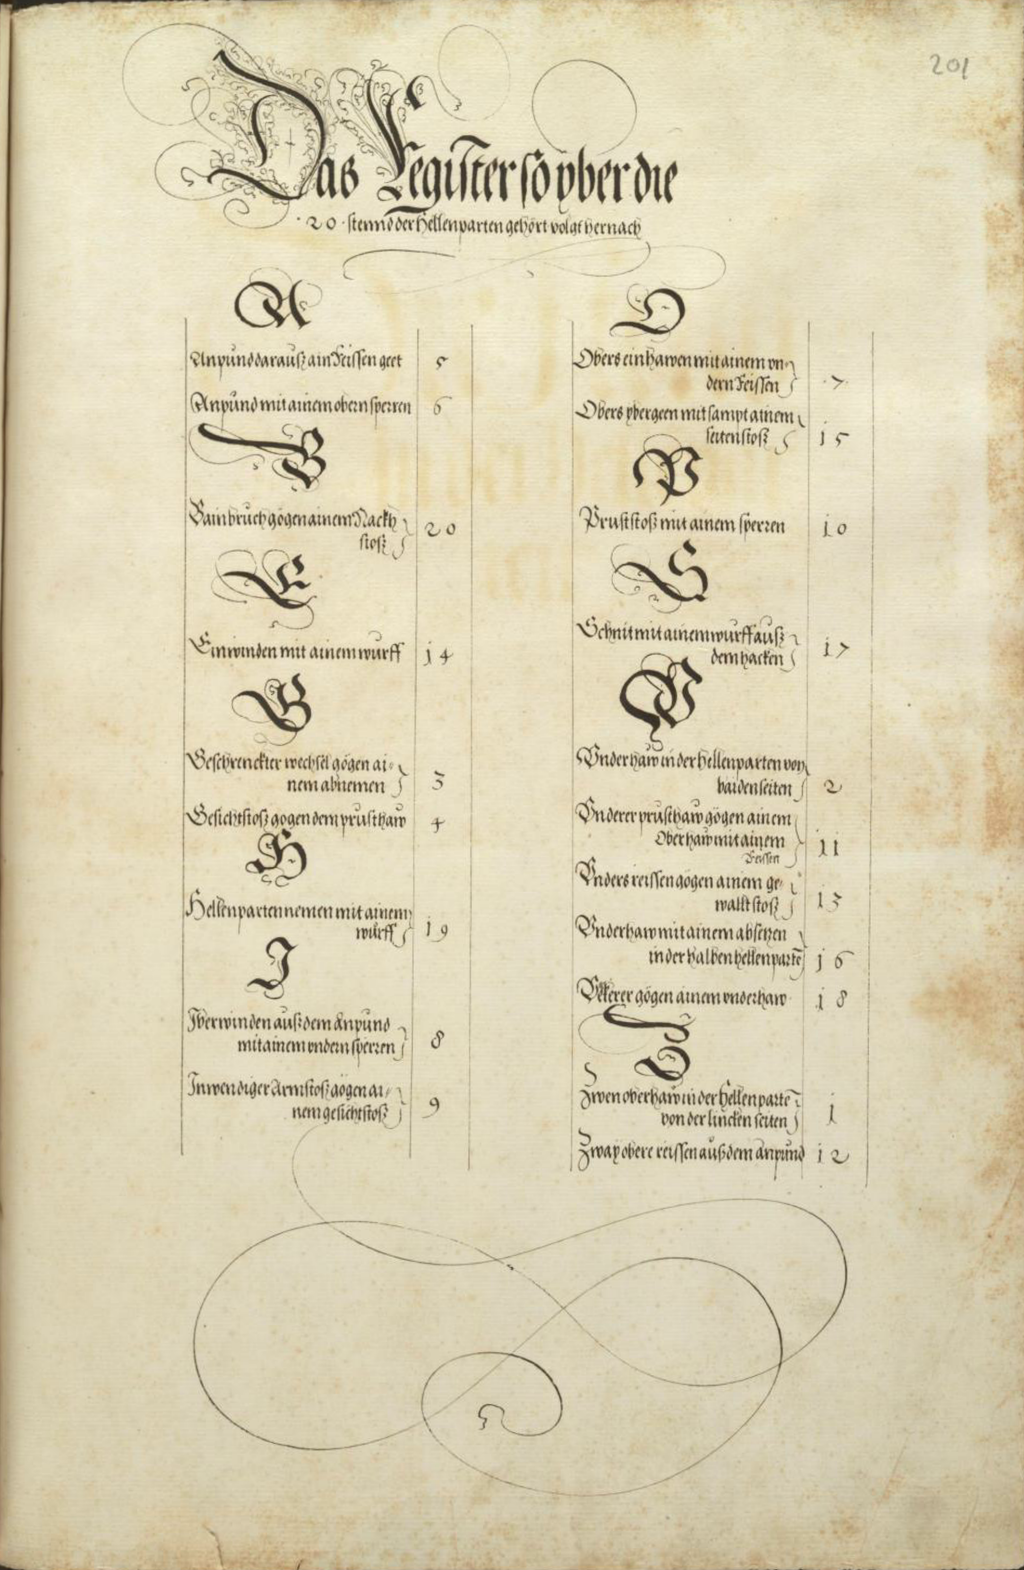 201
Das Register so yber die
20 stennd der Hellenparten gehört volgt hernach
A
Anpund darauß ain Reissen geet 5
Anpund mit ainem obern sperren 6
B
Bainbruch gögen ainem Nackh
stoß 20
E
Einwinden mit ainem wurff 14
G
Geschrenckter wechsel gögen ai-
nem abnemen 3
Gesichtstoß gogen dem prusthaw 4
H
Hellenparten nemen mit ainem
wurff 19
I
Iberwinden auß dem Anpund
mit ainem undern sperren 8
Inwendiger Armstoß gögen ai-
nem gesichtstoß 9
O
Obers einhawen mit ainem vn-
dern Reissen 7
Obers ybergeen mit sampt ainem
seitenstoß 15
P
Pruststoß mit ainem sperren 10
S
Schnit mit ainem wurff auß
dem hacken 17
V
Vnderhaw in der Hellenparten von
baiden seiten 2
Vnderer prusthaw gögen ainem
Oberhaw mit ainem
Reissen 11
Vnders reissen gögen ainem ge-
waltstoß 13
Vnderhaw mit ainem absetzen
in der halben hellenparte 16
gögen ainem vnderhaw 18
Z
Zwen oberhaw in der Hellenparte
von der lincken seiten 1
Zway obere reissen auß dem Anpund 12